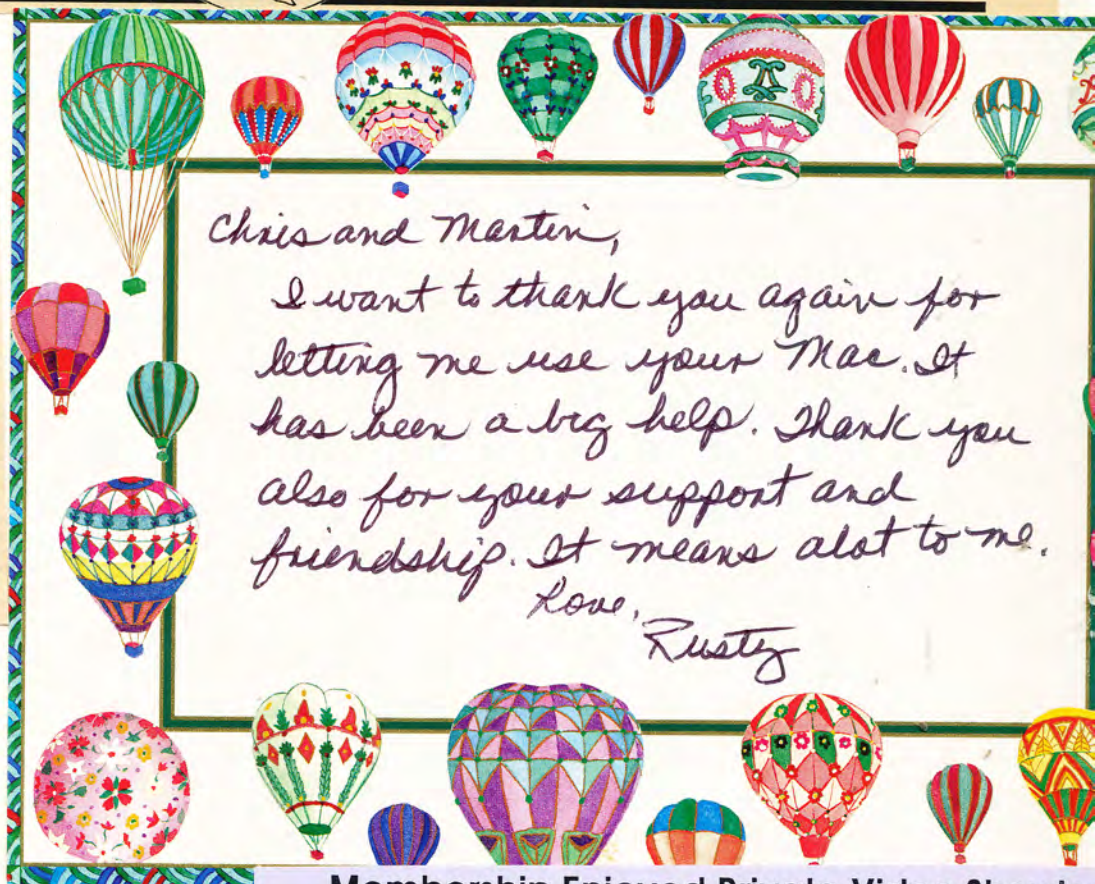 Chris and Martin,
I want to thank you again for
letting me use your Mac. It
has been a big help. Thank you
also for your support and
friendship. It means alot to me.
Love,
Rusty
Membership Enjoyed Privately